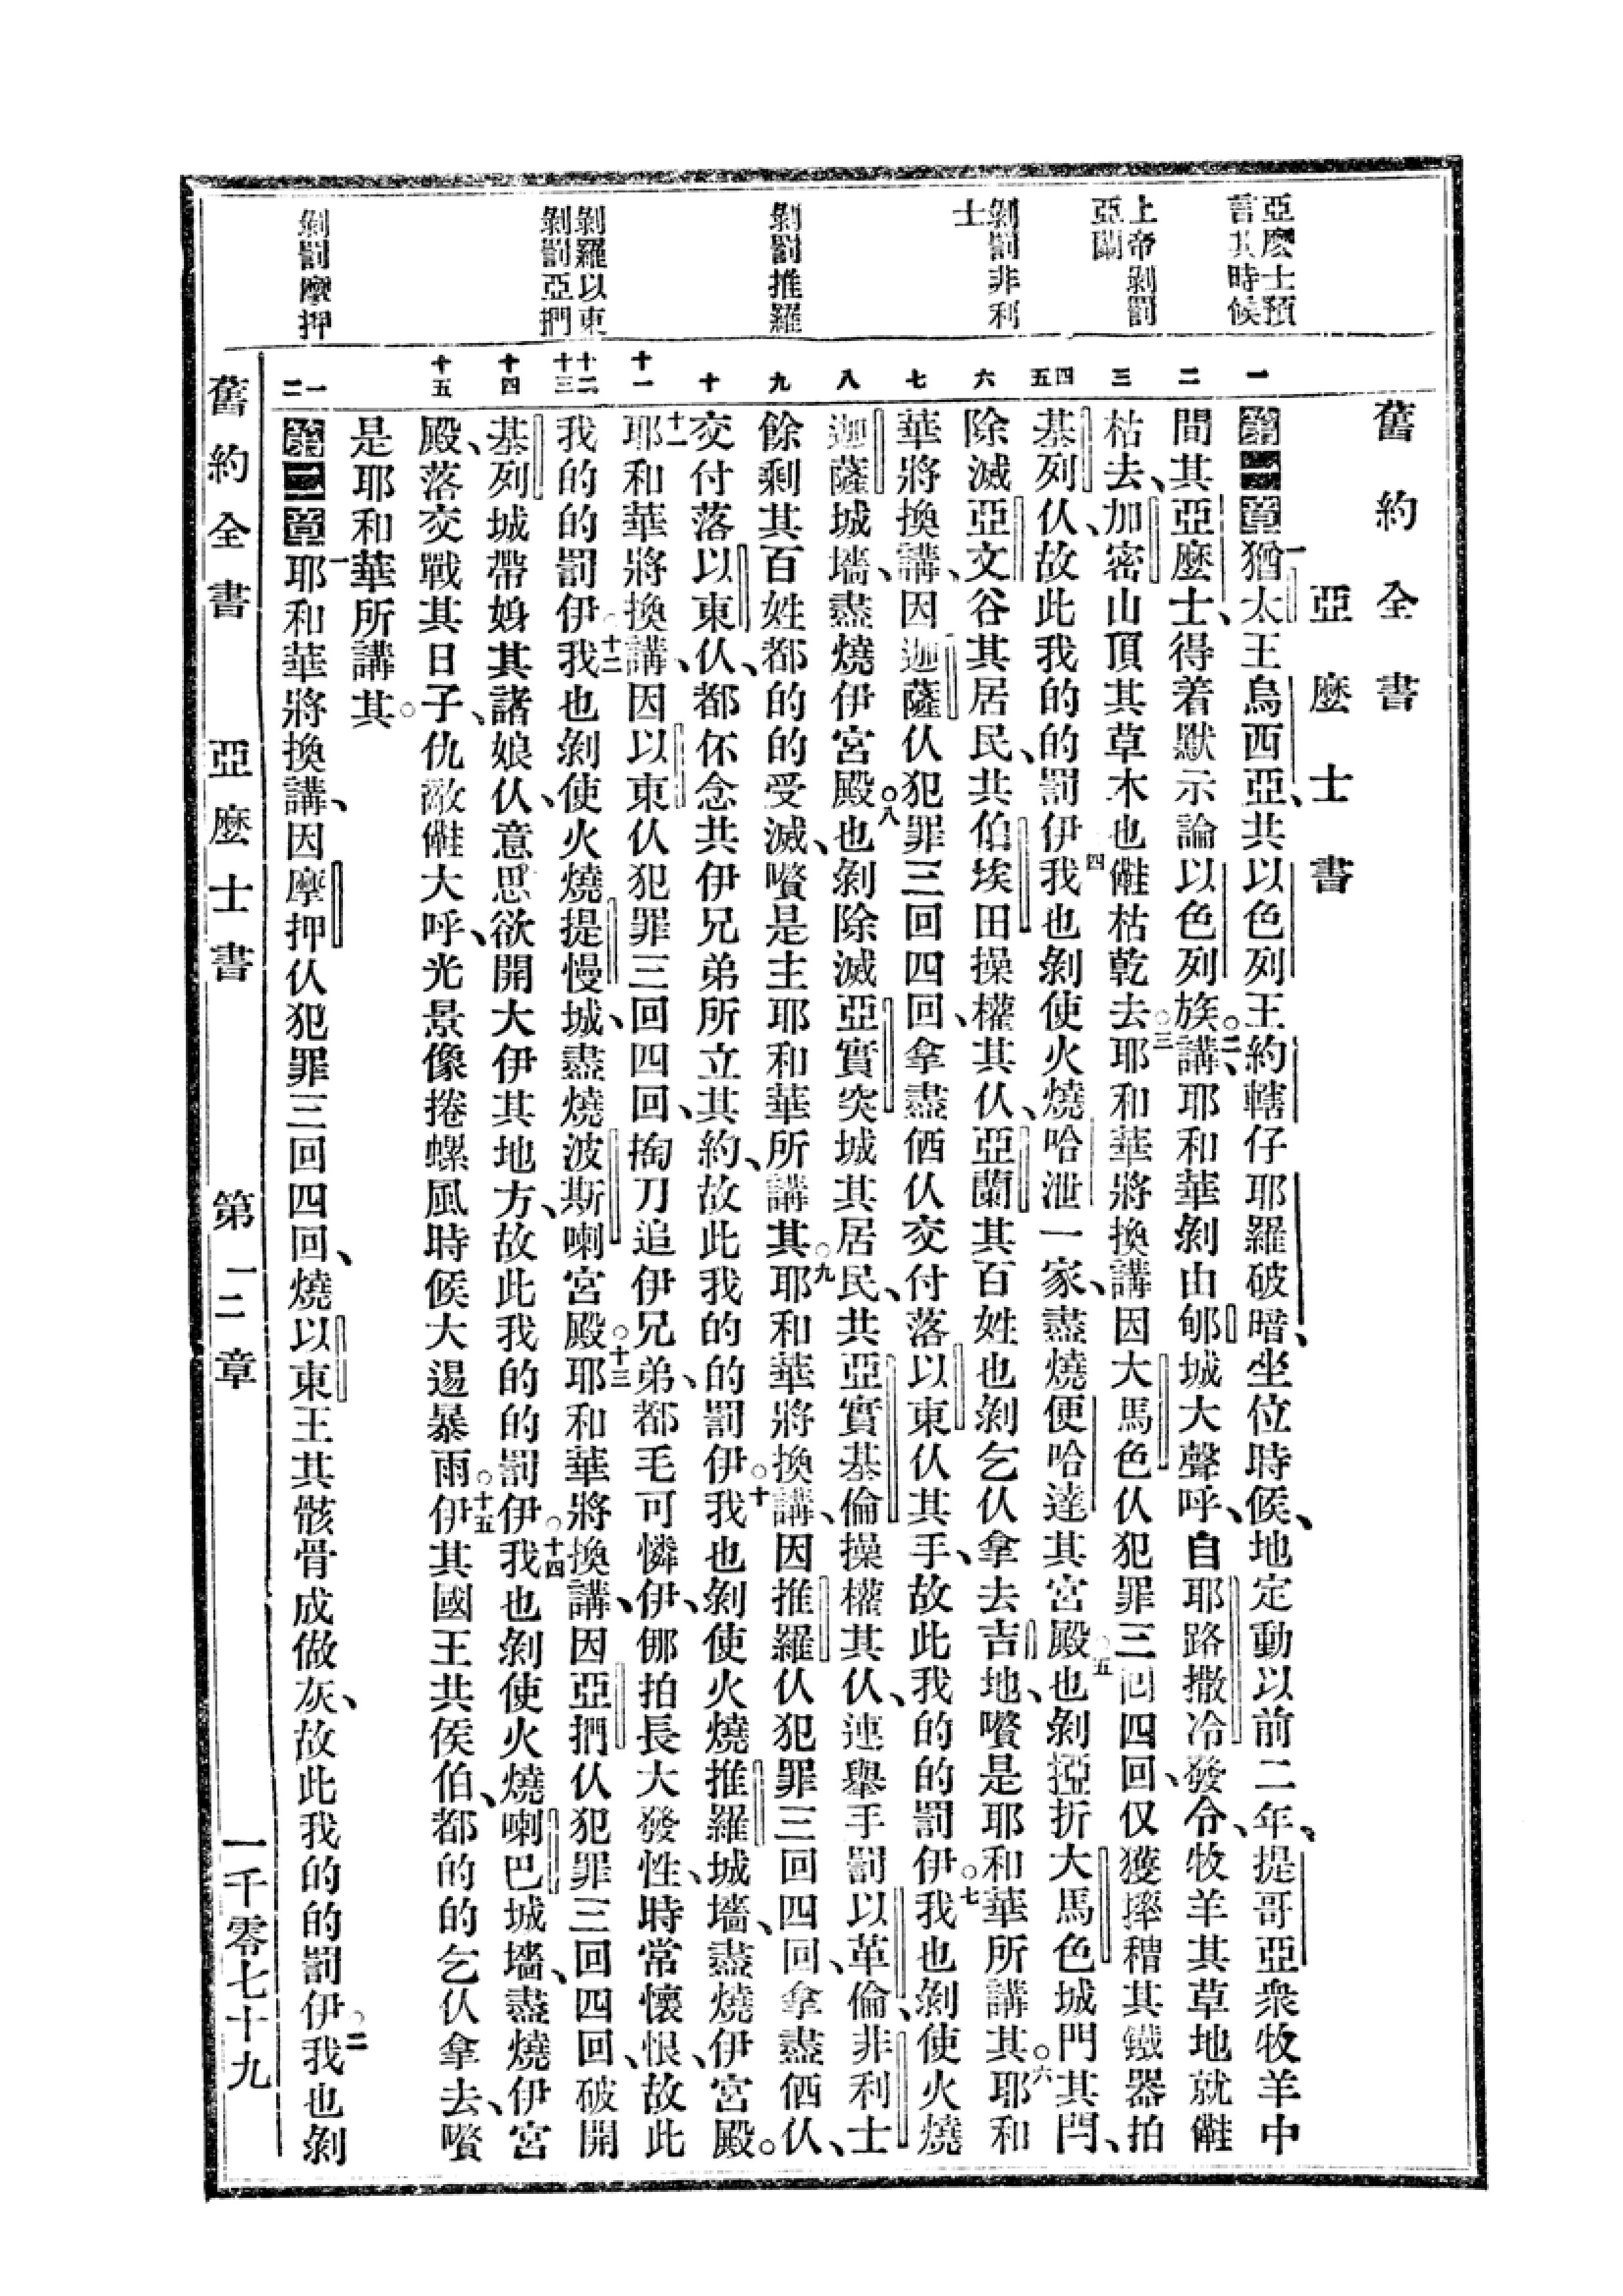 舊約全書
亞麼士書
亞麼士預
言其時候
上帝剝罰
亞蘭
剝罰非利
士
剝罰推羅
剝羅以東
剝罰亞捫
剝罰摩押
一
二
三
四
五
六
七
八
九
十
十一
十二
十三
十四
十五
一
二
第一章一猶太王烏西亞、共以色列王約轄仔耶羅破暗、坐位時候、地定動以前二年、提哥亞衆牧羊中
間其亞麼士、得着默示論以色列族。二講、耶和華剝由郇城大聲呼、自耶路撒冷發令、牧羊其草地就𠆧
枯去、加密山頂其草木也𠆧枯乾去。三耶和華將換講因大馬色伩犯罪三回四回、仅獲摔稽其鐵器拍
基列伩、故此我的的罰伊。四我也剝使火燒哈泄一家、盡燒便哈達其宮殿。五也剝挜折大馬色城門其閂、
除滅亞文谷其居民、共伯埃田操權其伩、亞蘭其百姓也剝乞伩拿去吉地、嚽是耶和華所講其。六耶和
華將換講、因迦薩伩犯罪三回四回、拿盡伷伩交付落以東伩其手、故此我的的罰伊。七我也剝使火燒
迦薩城墻、盡燒伊宮殿。八也剝除滅亞實突城其居民、共亞實基倫操權其伩、連舉手罰以革倫、非利士
餘剩其百姓都的的受滅、嚽是主耶和華所講其。九耶和華將換講、因推羅伩犯罪三回四回、拿盡伷伩、
交付落以東伩、都伓念共伊兄弟所立其約、故此我的的罰伊。十我也剝使火燒推羅城墻、盡燒伊宮殿。
十一耶和華將換講、因以東伩犯罪三回四回、掏刀追伊兄弟、都毛可憐伊、㑚拍長大發性、時常懷恨、故此
我的的罰伊。十二我也剝使火燒提慢城、盡燒波斯喇宮殿。十三耶和華將換講、因亞捫伩犯罪三回四回、破開
基列城帶㛛其諸娘伩、意思欲開大伊其地方、故此我的的罰伊。十四我也剝使火燒喇巴城墻、盡燒伊宮
殿、落交戰其日子、仇敵𠆧大呼、光景像捲螺風時候大逿暴雨。十五伊其國王共侯伯、都的的乞伩拿去、嚽
是耶和華所講其。
第二章一耶和華將換講、因摩押伩犯罪三回四回、燒以東王其骸骨成做灰、故此我的的罰伊。二我也剝
舊約全書 亞麼士書 第一二章 一千零七十九